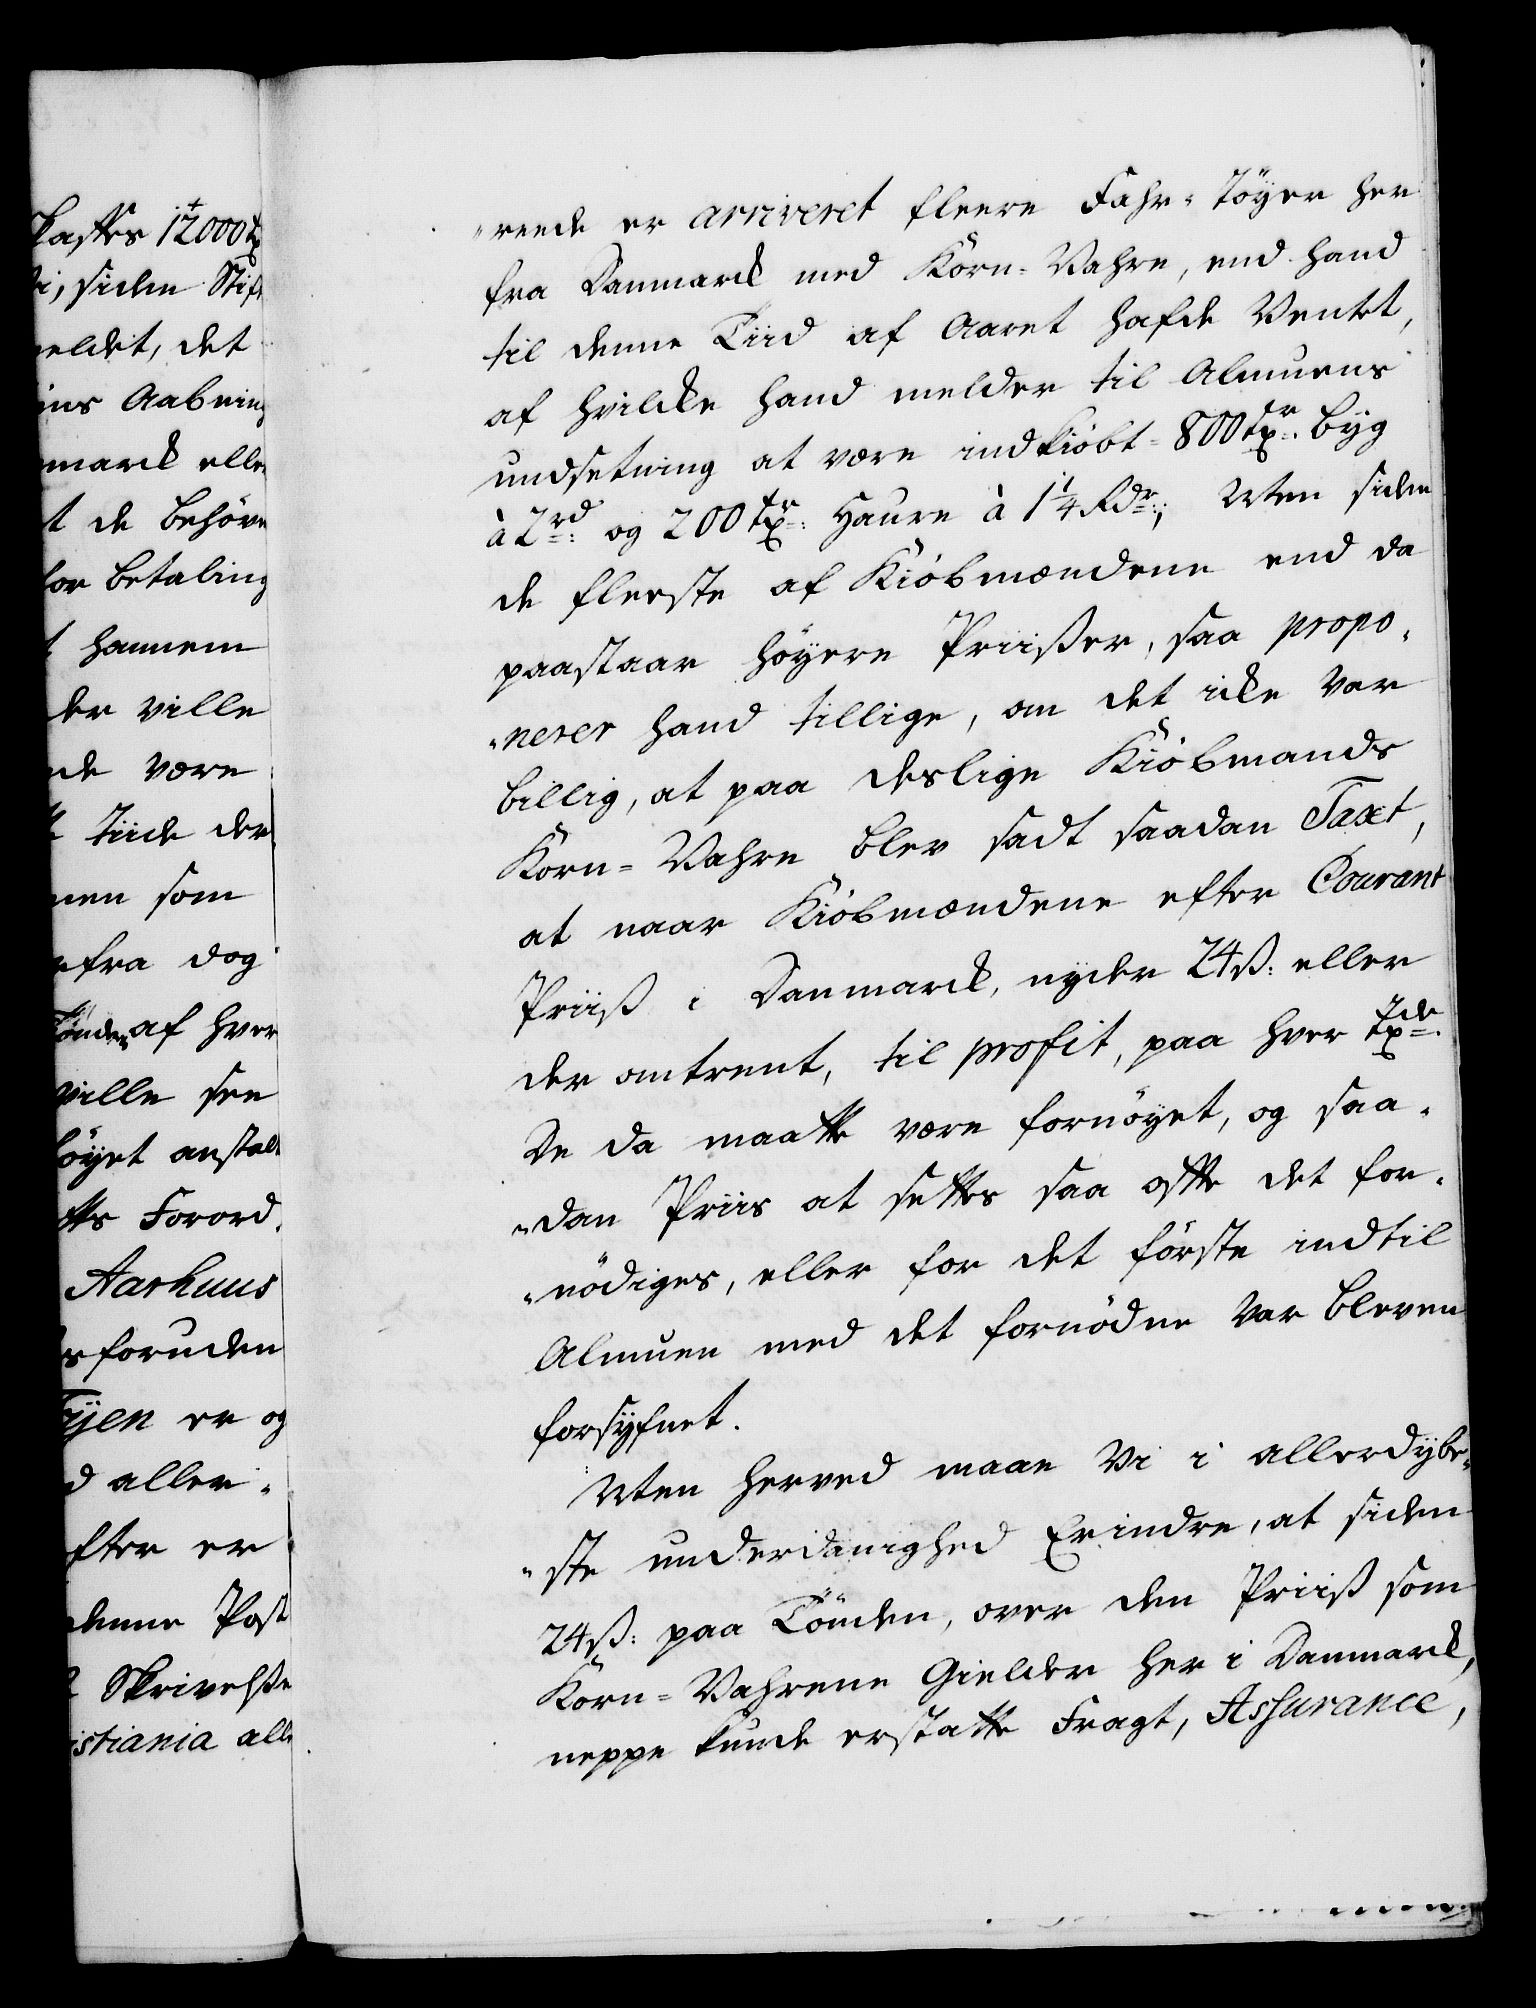 kaster 12000 tr
i, siden Stif
eldet, det
ins Aabning
mark eller
t de behöve
for betaling
hannem
der ville
de være
tiide der
men som
fra dog
Tönder af hver
ville see
höyet anstalt
tts Forord.
Aarhuus
foruden
Tyen er og
d aller-
fter er
denne Post
Skrivelsse
istiania alle
"reede er arriveret fleere Fahr-Töyer her
fra Danmarck med Korn-Vahre, end hand
til denne Tiid af Aaret hafde Ventet,
af hvilcke hand melder til Almuens
undsetning at være indkiöbt 800 tr. byg
à 2 rd. og 200 tr. Haure à 1 1/4 Rdr.; Men siden
de fleeste af Kiöbmændene end da
paastaar höyere Priisser, saa propo-
"nerer hand tillige, om det icke Var
billig, at paa deslige Kiöbmands
Korn-Vahre blev sadt saadan Taxt,
at naar Kiöbmændene efter Courant
Priiss i Danmarck, nyder 24 ß: eller
der omtrent, til profit, paa hver tde.
De da maatte være fornöyet, og saa-
"dan Priis at settes saa ofte det for-
"nödiges, eller for det förste indtil
Almuen med det fornödne Var bleven
forsÿfnet.
Men herved maae Vi i allerdÿbe-
"ste underdanighed Erindre, at siden
24 ß: paa Tönden, over den Priiss som
Korn-Vahrene Gielder her i Danmarck,
neppe kunde erstatte Fragt, Assurance,